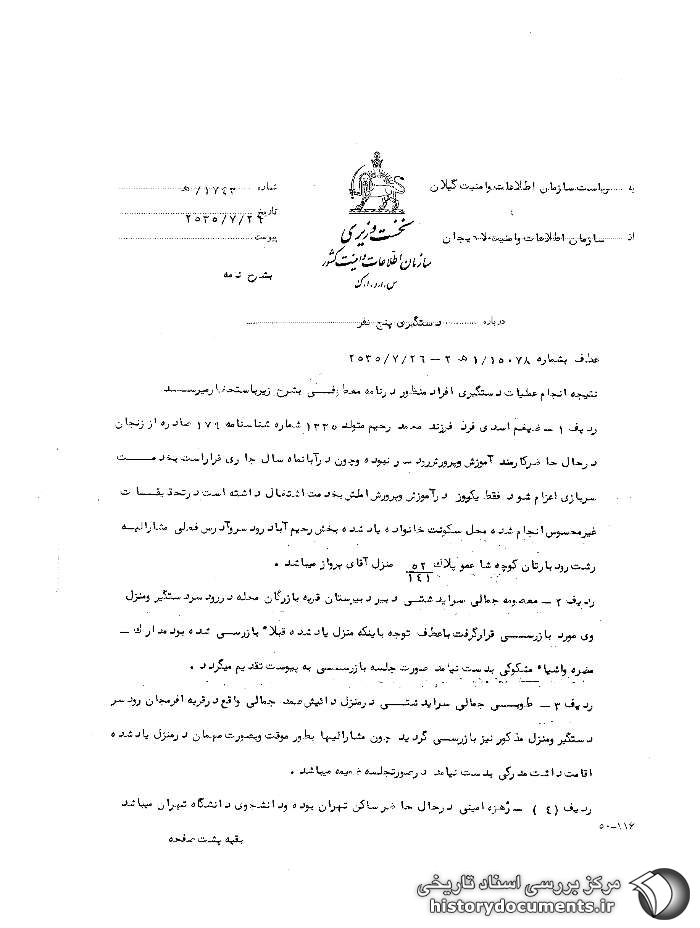 به ریاست سازمان اطلاعات و امنیت گیلان
از سازمان اطلاعات و امنیت لاهیجان
نخست وزیری
سازمان اطلاعات و امنیت کشور
س.ا.و.ا.ک
شماره ۱۷۴۳/ه
تاریخ ۲۵۳۵/۷/۲۹
پیوست
بشرح نامه
درباره دستگیری پنج نفر
عطف بشماره ۱/۱۵۰۷۸ ه ۲ – ۲۵۳۵/۷/۲۶
نتیجه انجام عملیات دستگیری افراد منظور در نامه معطوفی بشرح زیر باستحضار میرسد
ردیف ۱ – ضیغم اسدی فرد فرزند محمد رحیم متولد ۱۳۳۵ شماره شناسنامه ۱۷۹ صادره از زنجان
در حال حاضر کارمند آموزش و پرورش رود سر نبوده و چون در آبانماه سال جاری قرار است بخدمت
سربازی اعزام شود فقط یکروز در آموزش و پرورش املش بخدمت اشتغال داشته است در تحقیقات
غیر محسوس انجام شده محل سکونت خانواده یاد شده بخش رحیم آباد رود سر و آدرس فعلی مشارالیه
رشت رود بارتان کوچه شاعمو پلاک ۵۲/۱۴۱ منزل آقای پرواز میباشد .
ردیف ۲ – معصومه جمالی سرایدشتی دبیر دبیرستان قریه بازرگان محله در رود سر دستگیر و منزل
وی مورد بازرسی قرار گرفت با عطف توجه باینکه منزل یاد شده قبلاً بازرسی شده بود مدارک –
مضره و اشیاء مشکوکی بدست نیامد صورت جلسه بازرسی به پیوست تقدیم میگردد .
ردیف ۳ – طوبی جمالی سرایدشتی در منزل دائیش صمد جمالی واقع در قریه افرمجان رود سر
دستگیر و منزل مذکور نیز بازرسی گردید چون مشارالیها بطور موقت و بصورت مهمان در منزل یاد شده
اقامت داشت مدرکی بدست نیامد در صورتجلسه ضمیمه میباشد .
ردیف (۴) – زهره امینی در حال حاضر ساکن تهران بوده و دانشجوی دانشگاه تهران میباشد
۵۰–۱۱۶
بقیه پشت صفحه
مرکز بررسی اسناد تاریخی
historydocuments.ir